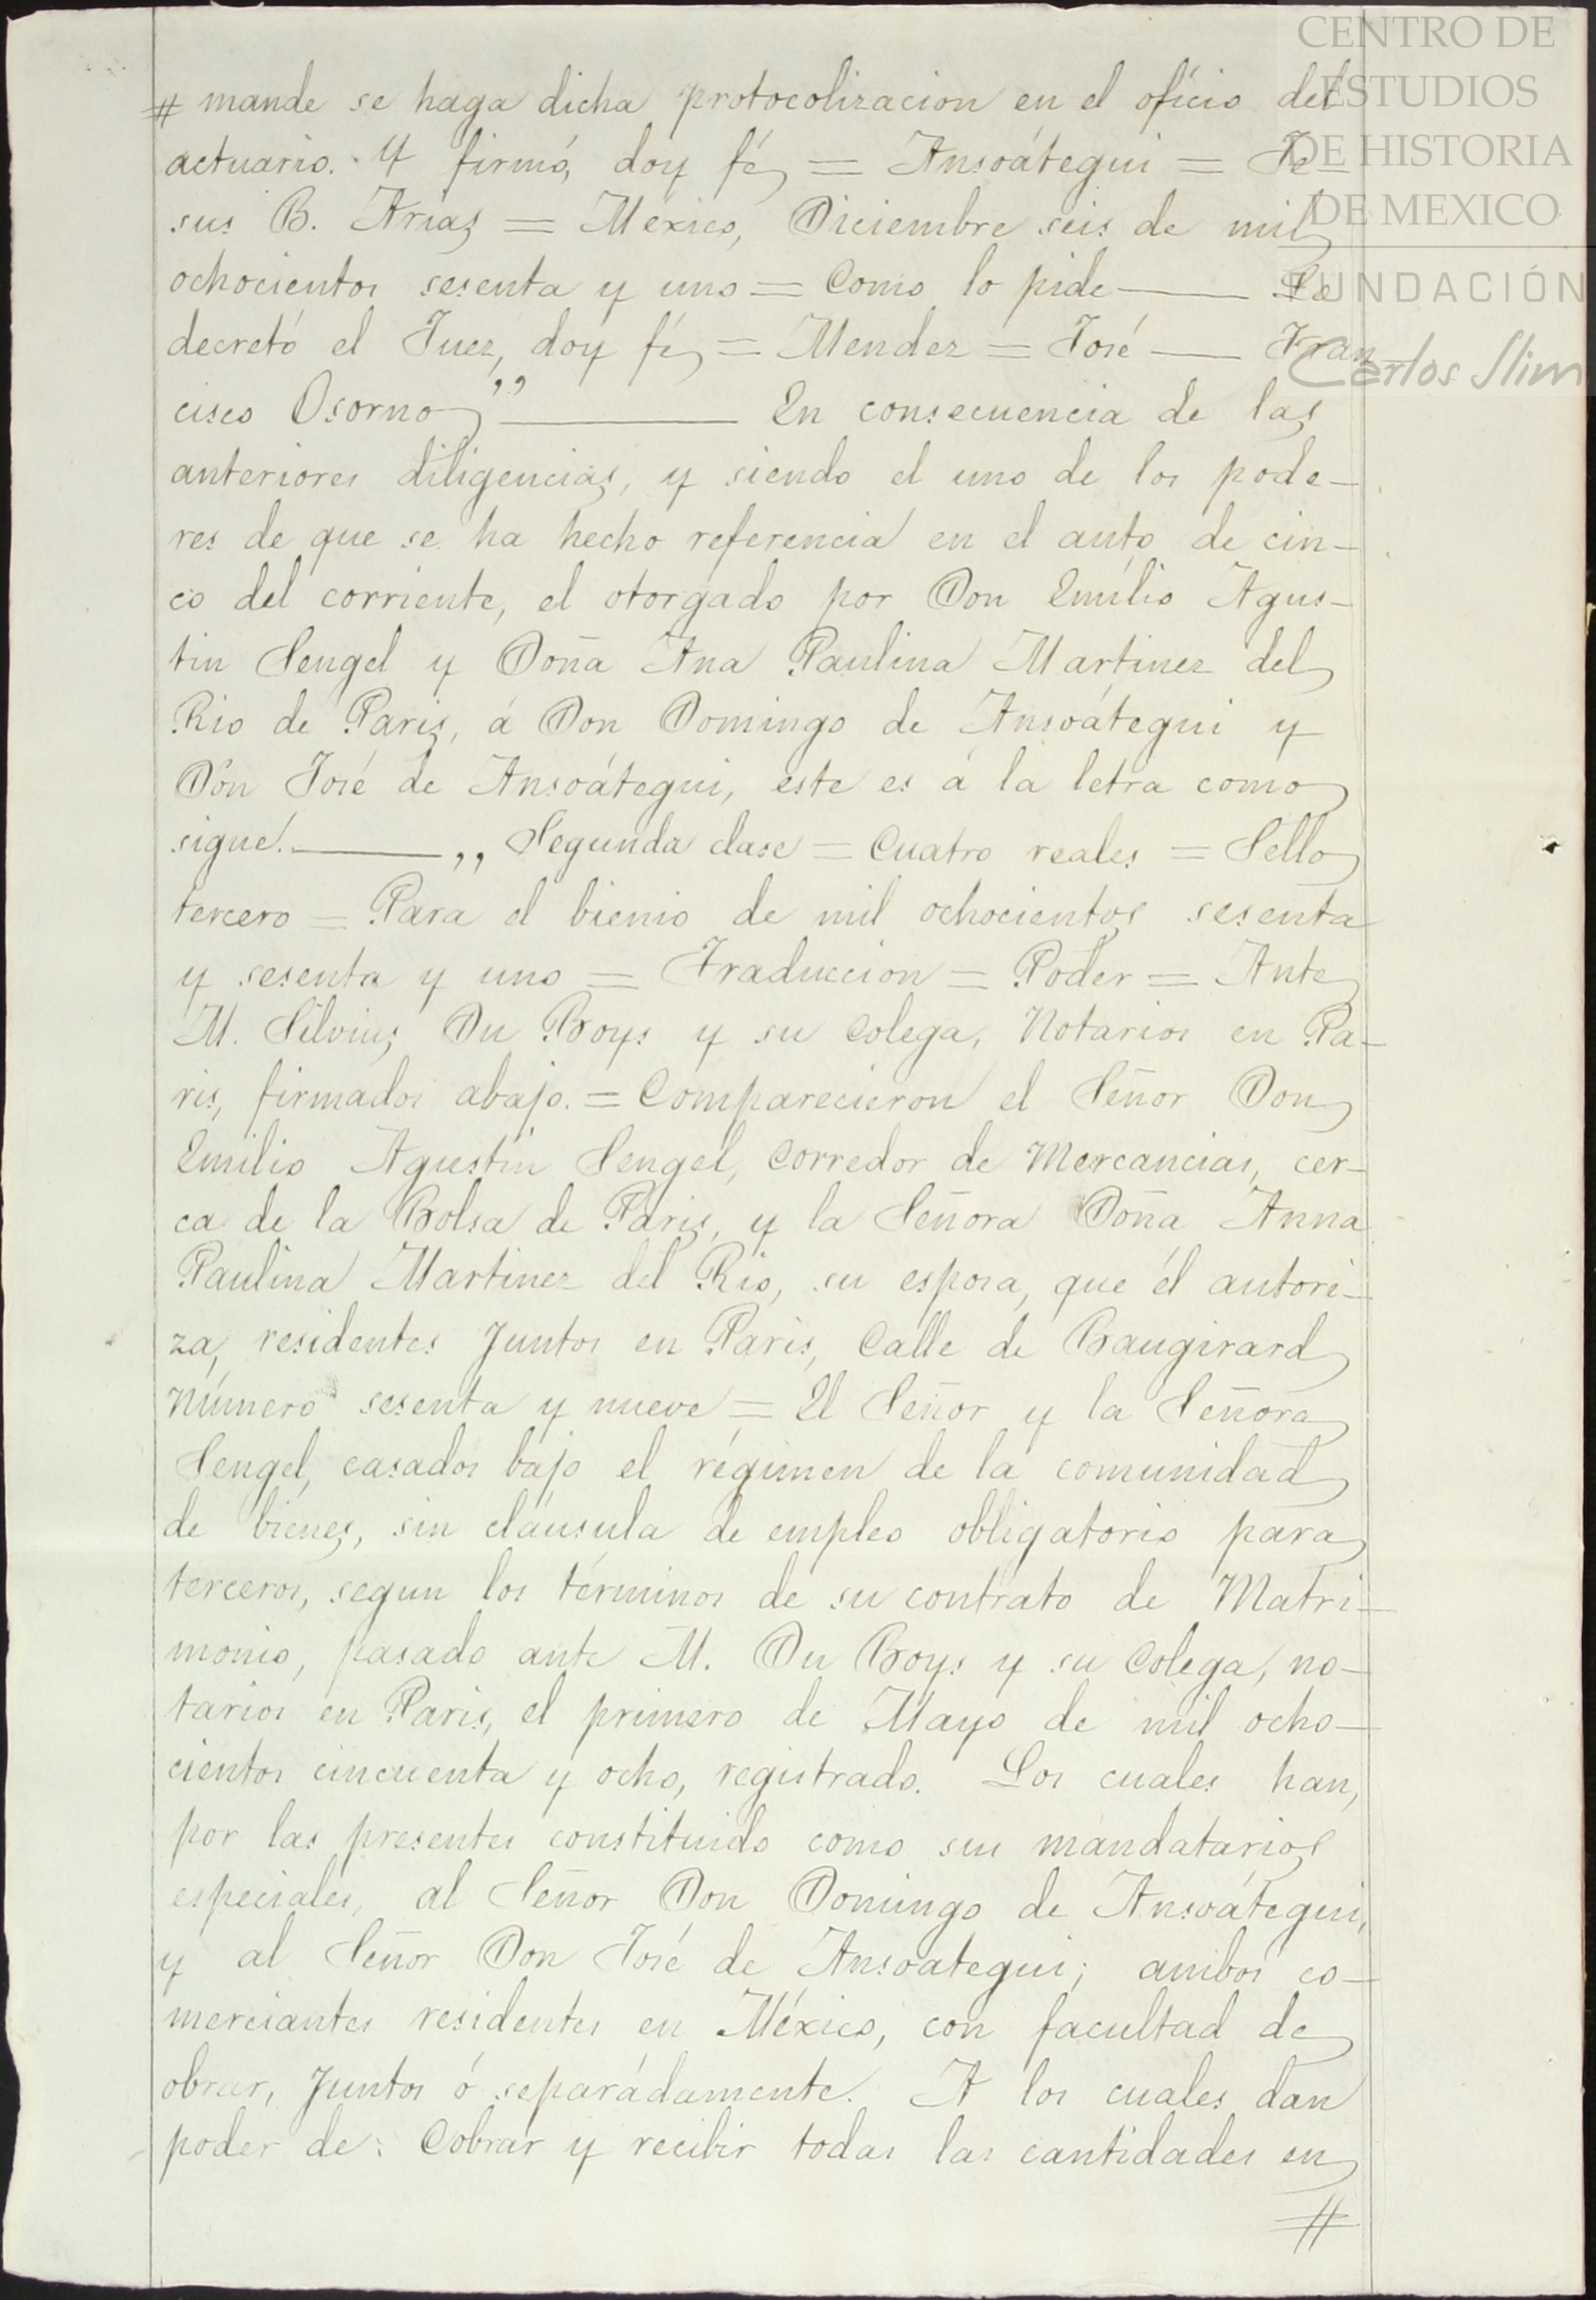 # mande se haga dicha protocolizacion en el oficio del
actuario. Y firmó, doy fé = Ansoátegui = Je-
sus B. Arias = México, Diciembre seis de mil
ochocientos sesenta y uno = Como lo pide —— Lo
decretó el Juez, doy fé = Mendez = José —— Fran
cisco Osorno" ———— En consecuencia de las
anteriores diligencias, y siendo el uno de los pode-
res de que se ha hecho referencia en el auto de cin-
co del corriente, el otorgado por Don Emilio Agus-
tin Sengel y Doña Ana Paulina Martinez del
Rio de Paris, á Don Domingo de Ansoátegui y
Don José de Ansoátegui, este es á la letra como
sigue. ———— ,, Segunda clase = Cuatro reales = Sello
tercero = Para el bienio de mil ochocientos sesenta
y sesenta y uno = Traduccion = Poder = Ante
M. Silvius Du Boys y su Colega, Notarios en Pa-
ris, firmados abajo. = Comparecieron el Señor Don
Emilio Agustin Sengel, Corredor de Mercancias, cer-
ca de la Bolsa de Paris, y la Señora Doña Anna
Paulina Martinez del Rio, su esposa, que él autori-
za, residentes Juntos en Paris, Calle de Baugirard
Número sesenta y nueve = El Señor y la Señora
Sengel, casados bajo el régimen de la comunidad
de bienes, sin cláusula de empleo obligatorio para
terceros, segun los términos de su contrato de Matri-
monio, pasado ante M. Du Boys y su Colega, no-
tarios en Paris, el primero de Mayo de mil ocho-
cientos cincuenta y ocho, registrado. Los cuales han,
por las presentes constituido como sus mandatarios
especiales, al Señor Don Domingo de Ansoátegui,
y al Señor Don José de Ansoategui; ambos co-
merciantes residentes en México, con facultad de
obrar, Juntos ó separádamente. A los cuales dan
poder de: Cobrar y recibir todas las cantidades en
#
CENTRO DE
ESTUDIOS
DE HISTORIA
DE MEXICO
FUNDACIÓN
Carlos Slim